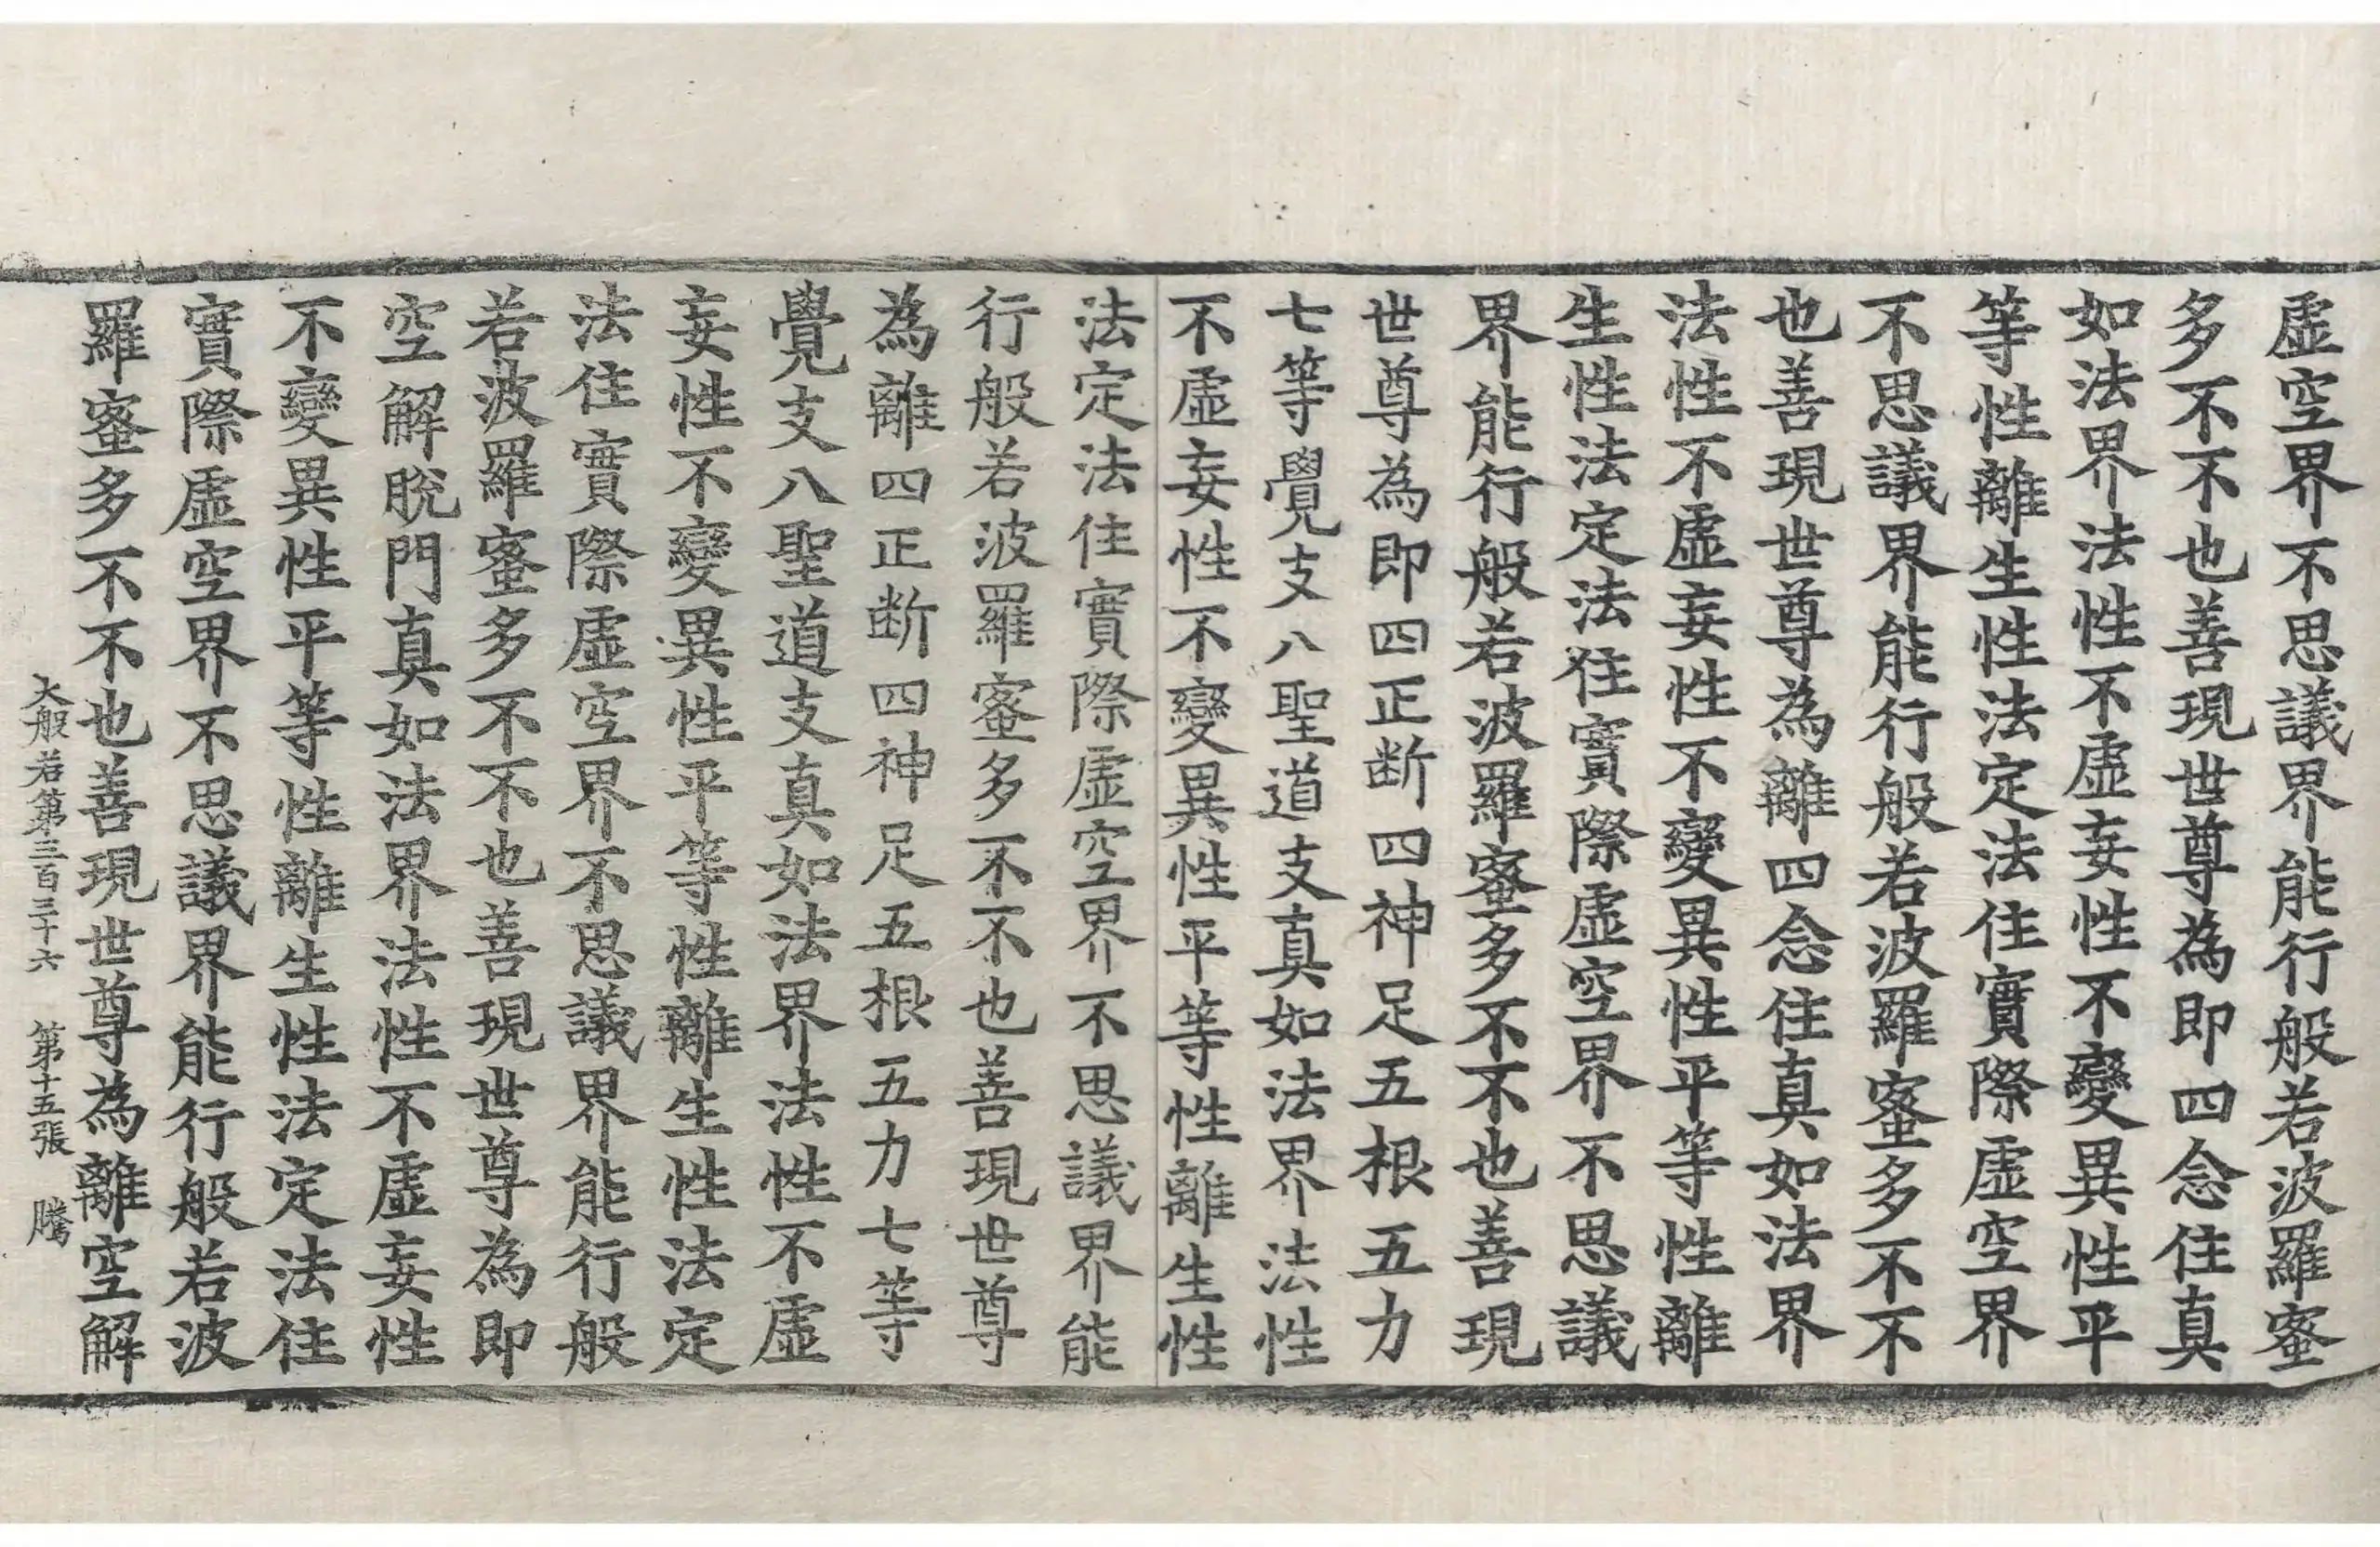 虛空界不思議界能行般若波羅蜜
多不不也善現世尊為即四念住真
如法界法性不虛妄性不變異性平
等性離生性法定法住實際虛空界
不思議界能行般若波羅蜜多不不
也善現世尊為離四念住真如法界
法性不虛妄性不變異性平等性離
生性法定法住實際虛空界不思議
界能行般若波羅蜜多不不也善現
世尊為即四正斷四神足五根五力
七等覺支八聖道支真如法界法性
不虛妄性不變異性平等性離生性
法定法住實際虛空界不思議界能
行般若波羅蜜多不不也善現世尊
為離四正斷四神足五根五力七等
覺支八聖道支真如法界法性不虛
妄性不變異性平等性離生性法定
法住實際虛空界不思議界能行般
若波羅蜜多不不也善現世尊為即
空解脫門真如法界法性不虛妄性
不變異性平等性離生性法定法住
實際虛空界不思議界能行般若波
羅蜜多不不也善現世尊為離空解
大般若第三百三十六 第十五張 騰